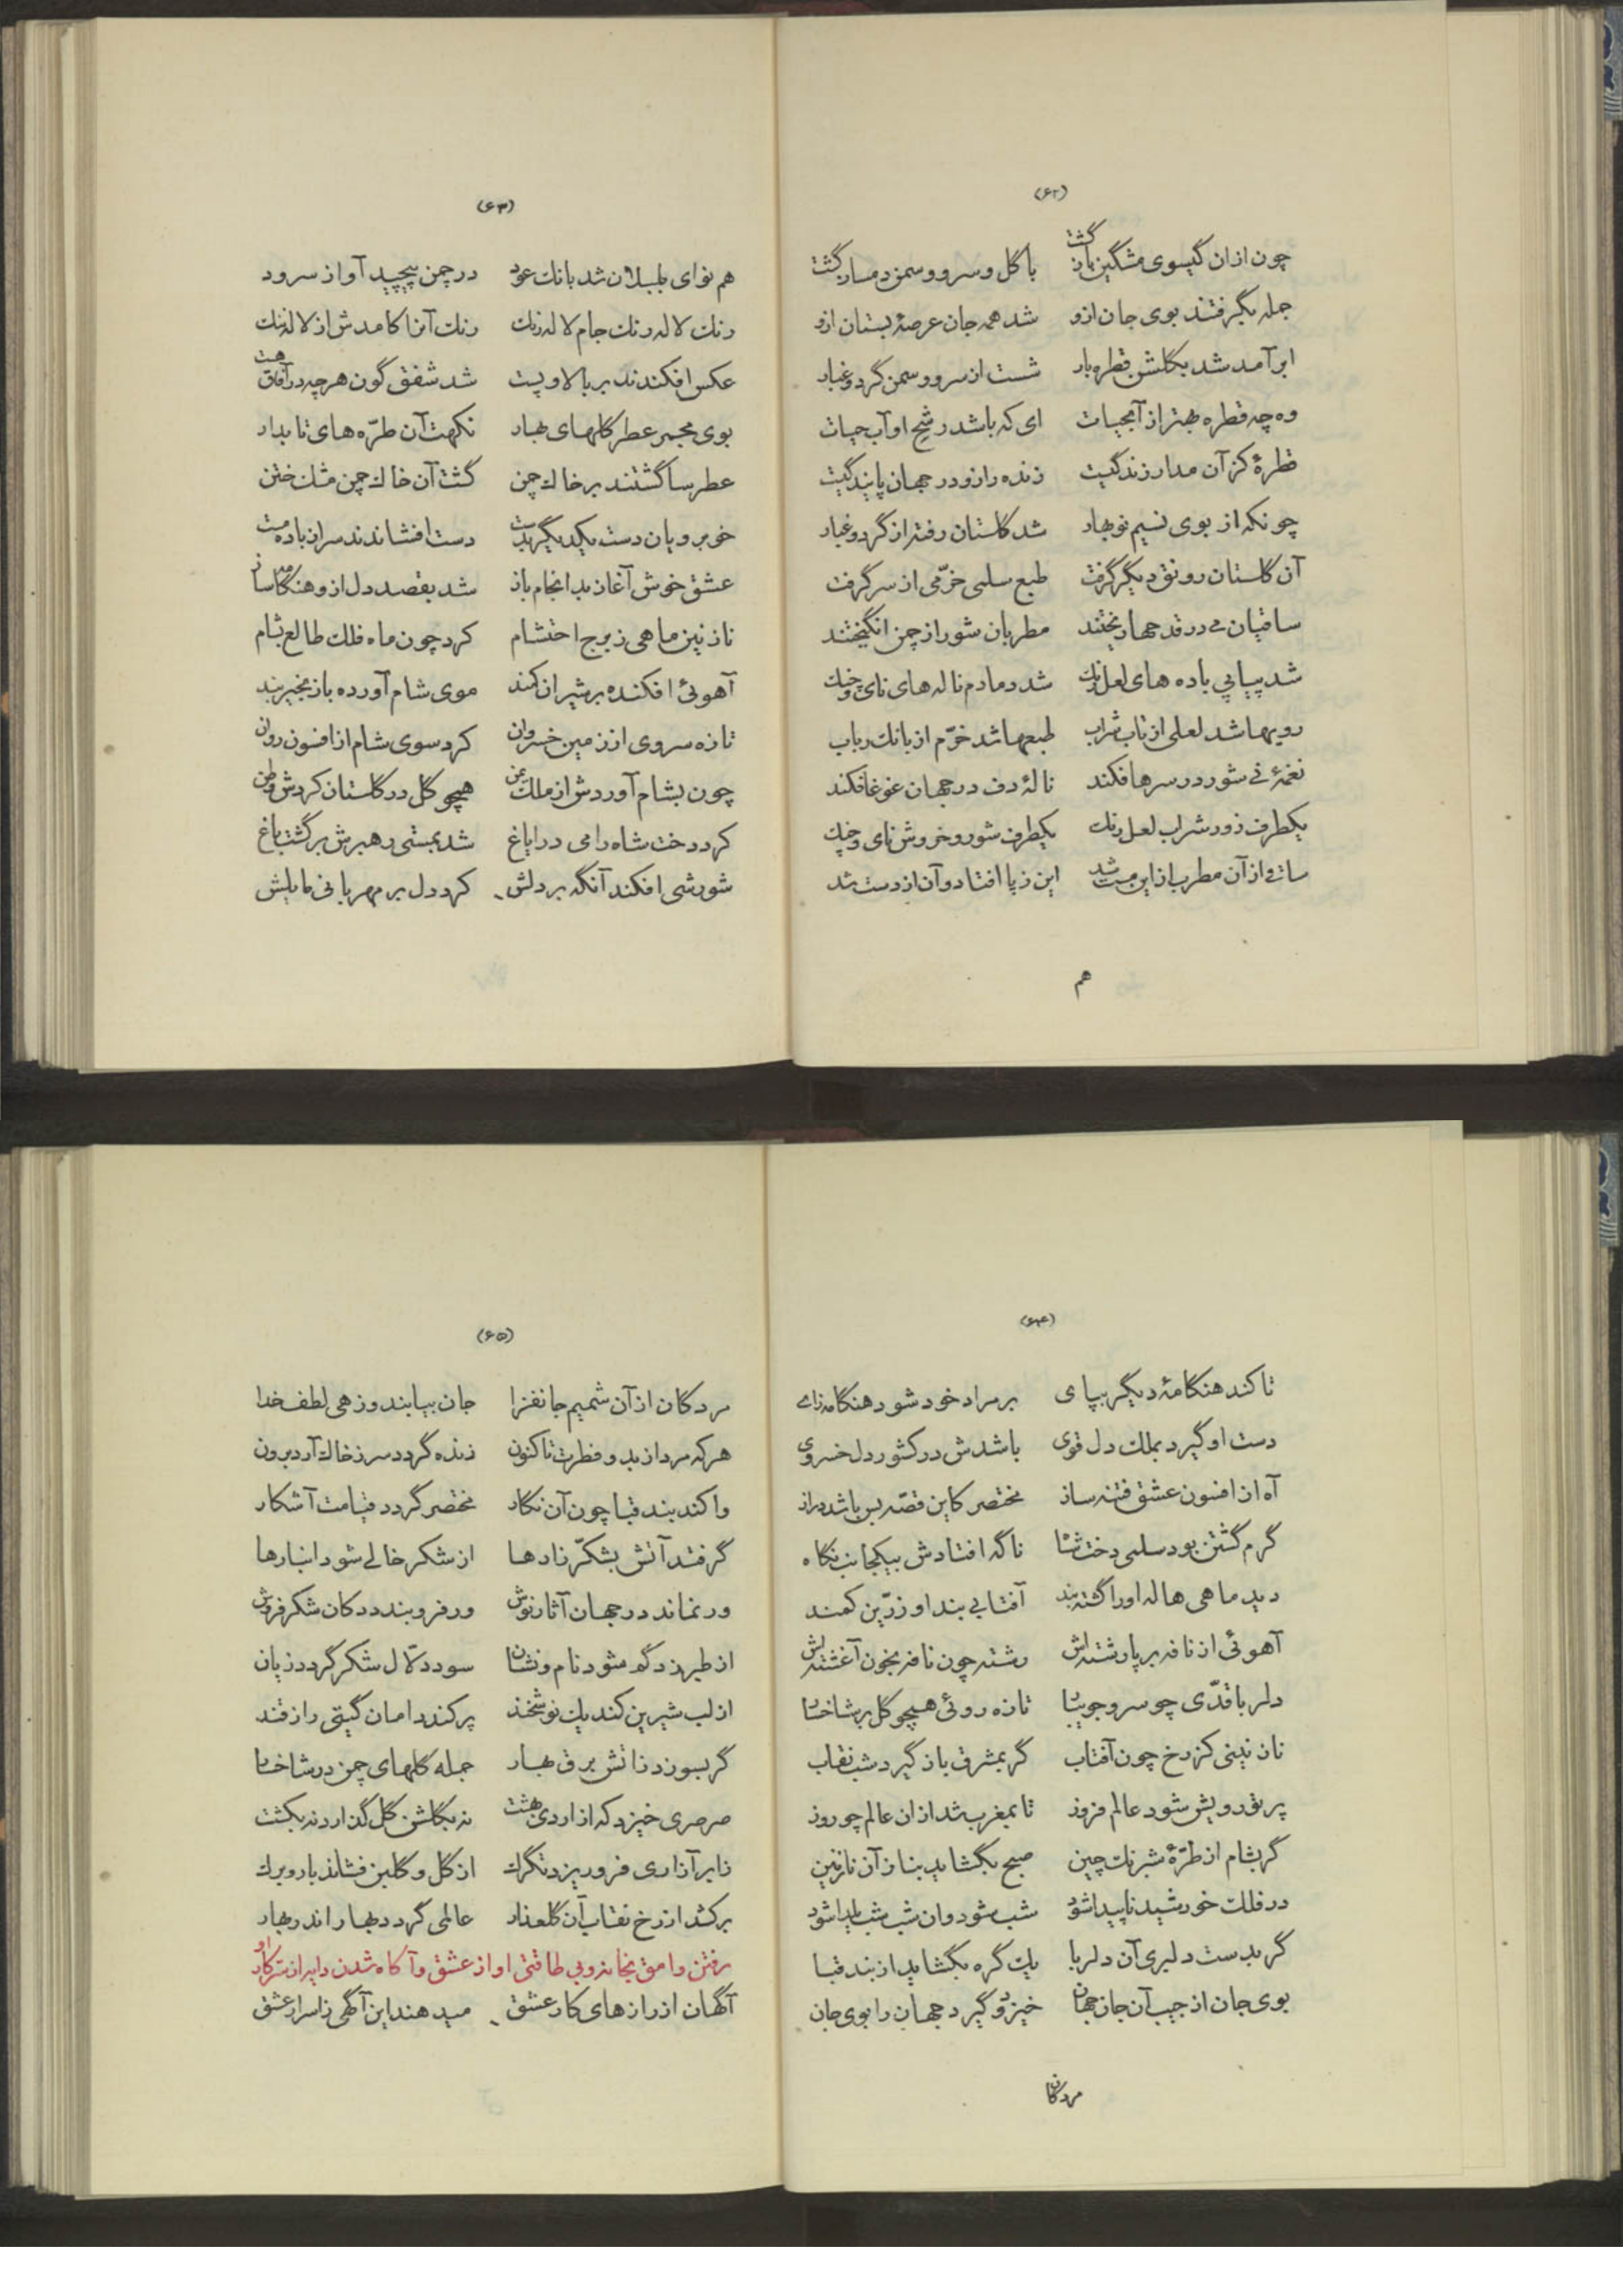 (۶۲)
چون ازان گیسوی مشگین باز گشت	با گل و سرو و سمن دمساز گشت
جمله بگرفتند بوی جان ازو	شد همه جان عرصۀ بستان ازو
ابر آمد شد بگلشن قطره بار	شست از سرو و سمن گرد و غبار
وه چه قطره بهتر از آبحیات	ای که باشد رشح او آب حیات
قطرۀ کز آن مدار زندگیست	زنده را زو در جهان پایندگیست
چونکه از بوی نسیم نوبهار	شد گلستان رفته از گرد و غبار
آن گلستان رونق دیگر گرفت	طبع سلمی خرّمی از سر گرفت
ساقیان می در قدحها ریختند	مطربان شور از چمن انگیختند
شد پیاپی باده های لعل رنگ	شد دمادم ناله های نای و چنگ
رویها شد لعلی از تاب شراب	طبعها شد خرّم از بانك رباب
نغمۀ نی شور در سرها فکند	نالۀ دف در جهان غوغا فکند
یکطرف زور شراب لعل رنك	یکطرف شور و خروش نای و چنك
ساقی از آن مطرب از این مست شد	این ز پا افتاد و آن از دست شد
هم
(۶۳)
هم نوای بلبلان شد بانك عود	در چمن پیچید آواز سرود
رنك لاله رنك جام لاله رنك	رنك آنا کامدش از لاله ننك
عکس افکندند بر بالا و پست	شد شفق گون هرچه در آفاق هست
بوی مجمر عطر گلهای بهار	نکهت آن طرّه های تابدار
عطر سا گشتند بر خاك چمن	گشت آن خاك چمن مشك ختن
خوبرویان دست یکدیگر بدست	دست افشاندند سر از باده مست
عشق خوش آغاز بد انجام باز	شد بقصد دل از و هنگامه ساز
نازنین ماهی ز برج احتشام	کرد چون ماه فلك طالع بشام
آهوئی افکنده بر شیران کمند	موی شام آورده باز نخجیر بند
تازه سروی از زمین خسروان	کرد سوی شام از افسون روان
چون بشام آوردش از ملك یمن	همچو گل در گلستان کردش وطن
کرد دخت شاه را می در ایاغ	شد بمستی رهبرش بر گشت باغ
شورشی افکند آنگه بر دلش	کرد دل بر مهربانی مایلش
(۶۴)
تا کند هنگامۀ دیگر بپای	بر مراد خود شود هنگامه زای
دست او گیرد بملك دل قوی	باشدش در کشور دل خسروی
آه از افسون عشق فتنه ساز	مختصر کاین قصّه بس باشد دراز
گرم گشتن بود سلمی دخت شاه	ناگه افتادش بیکجانب نگاه
دید ماهی هاله او را گشته بند	آفتابی بند او زرّین کمند
آهوئی از نافه بر پا رشته اش	رشته چون نافه بخون آغشته اش
دلربا قدّی چو سرو جویبار	تازه روئی همچو گل بر شاخسار
نازنینی کز رخ چون آفتاب	گر بمشرق باز گیرد شب نقاب
پرتو رویش شود عالم فروز	تا بمغرب شد از ان عالم چو روز
گر بشام از طرّۀ شبرنك چین	صبح بگشاید بناز آن نازنین
در فلك خورشید ناپیدا شود	شب شود وان شب شب یلدا شود
گر بدست دلبری آن دلربا	یك گره بگشاید از بند قبا
بوی جان از جیب آن جان جهان	خیزد و گیرد جهان را بوی جان
مردکان
(۶۵)
مردکان از آن شمیم جانفزا	جان بیابند و زهی لطف خدا
هر که مرد از بدو فطرت تا کنون	زنده گردد سر ز خاك آرد برون
وا کند بند قبا چون آن نگار	مختصر گردد قیامت آشکار
گر فتد آتش بشکّر زارها	از شکر خالی شود انبارها
ور نماند در جهان آثار نوش	ور فرو بندد دکان شکر فروش
از طبرزد گم شود نام و نشان	سود دلّال شکر گردد زیان
از لب شیرین کند یك نوشخند	پر کند دامان گیتی را ز قند
گر بسوزد ز اتش برق بهار	جمله گلهای چمن در شاخسار
صرصری خیزد که از اردی بهشت	نه بگلشن گل گذارد نه بکشت
ز ابر آزاری فرو ریزد تگرك	از گل و گلبن فشاند بار و برك
بر کشد از رخ نقاب آن گلعذار	عالمی گردد بهار اندر بهار
رفتن وامق بخانه و بی طاقتی او از عشق و آگاه شدن دایه از سرّ کار او
آگهان از رازهای کار عشق	میدهند این آگهی ز اسرار عشق